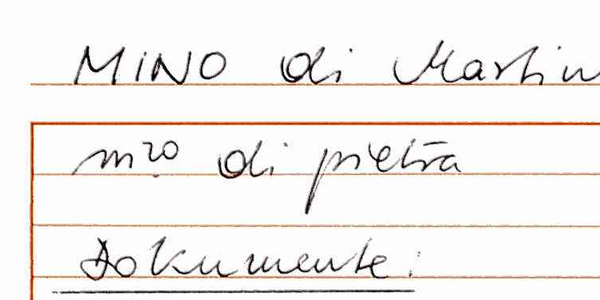 MINO di Martin
m^zo di pietra
Dokumente: